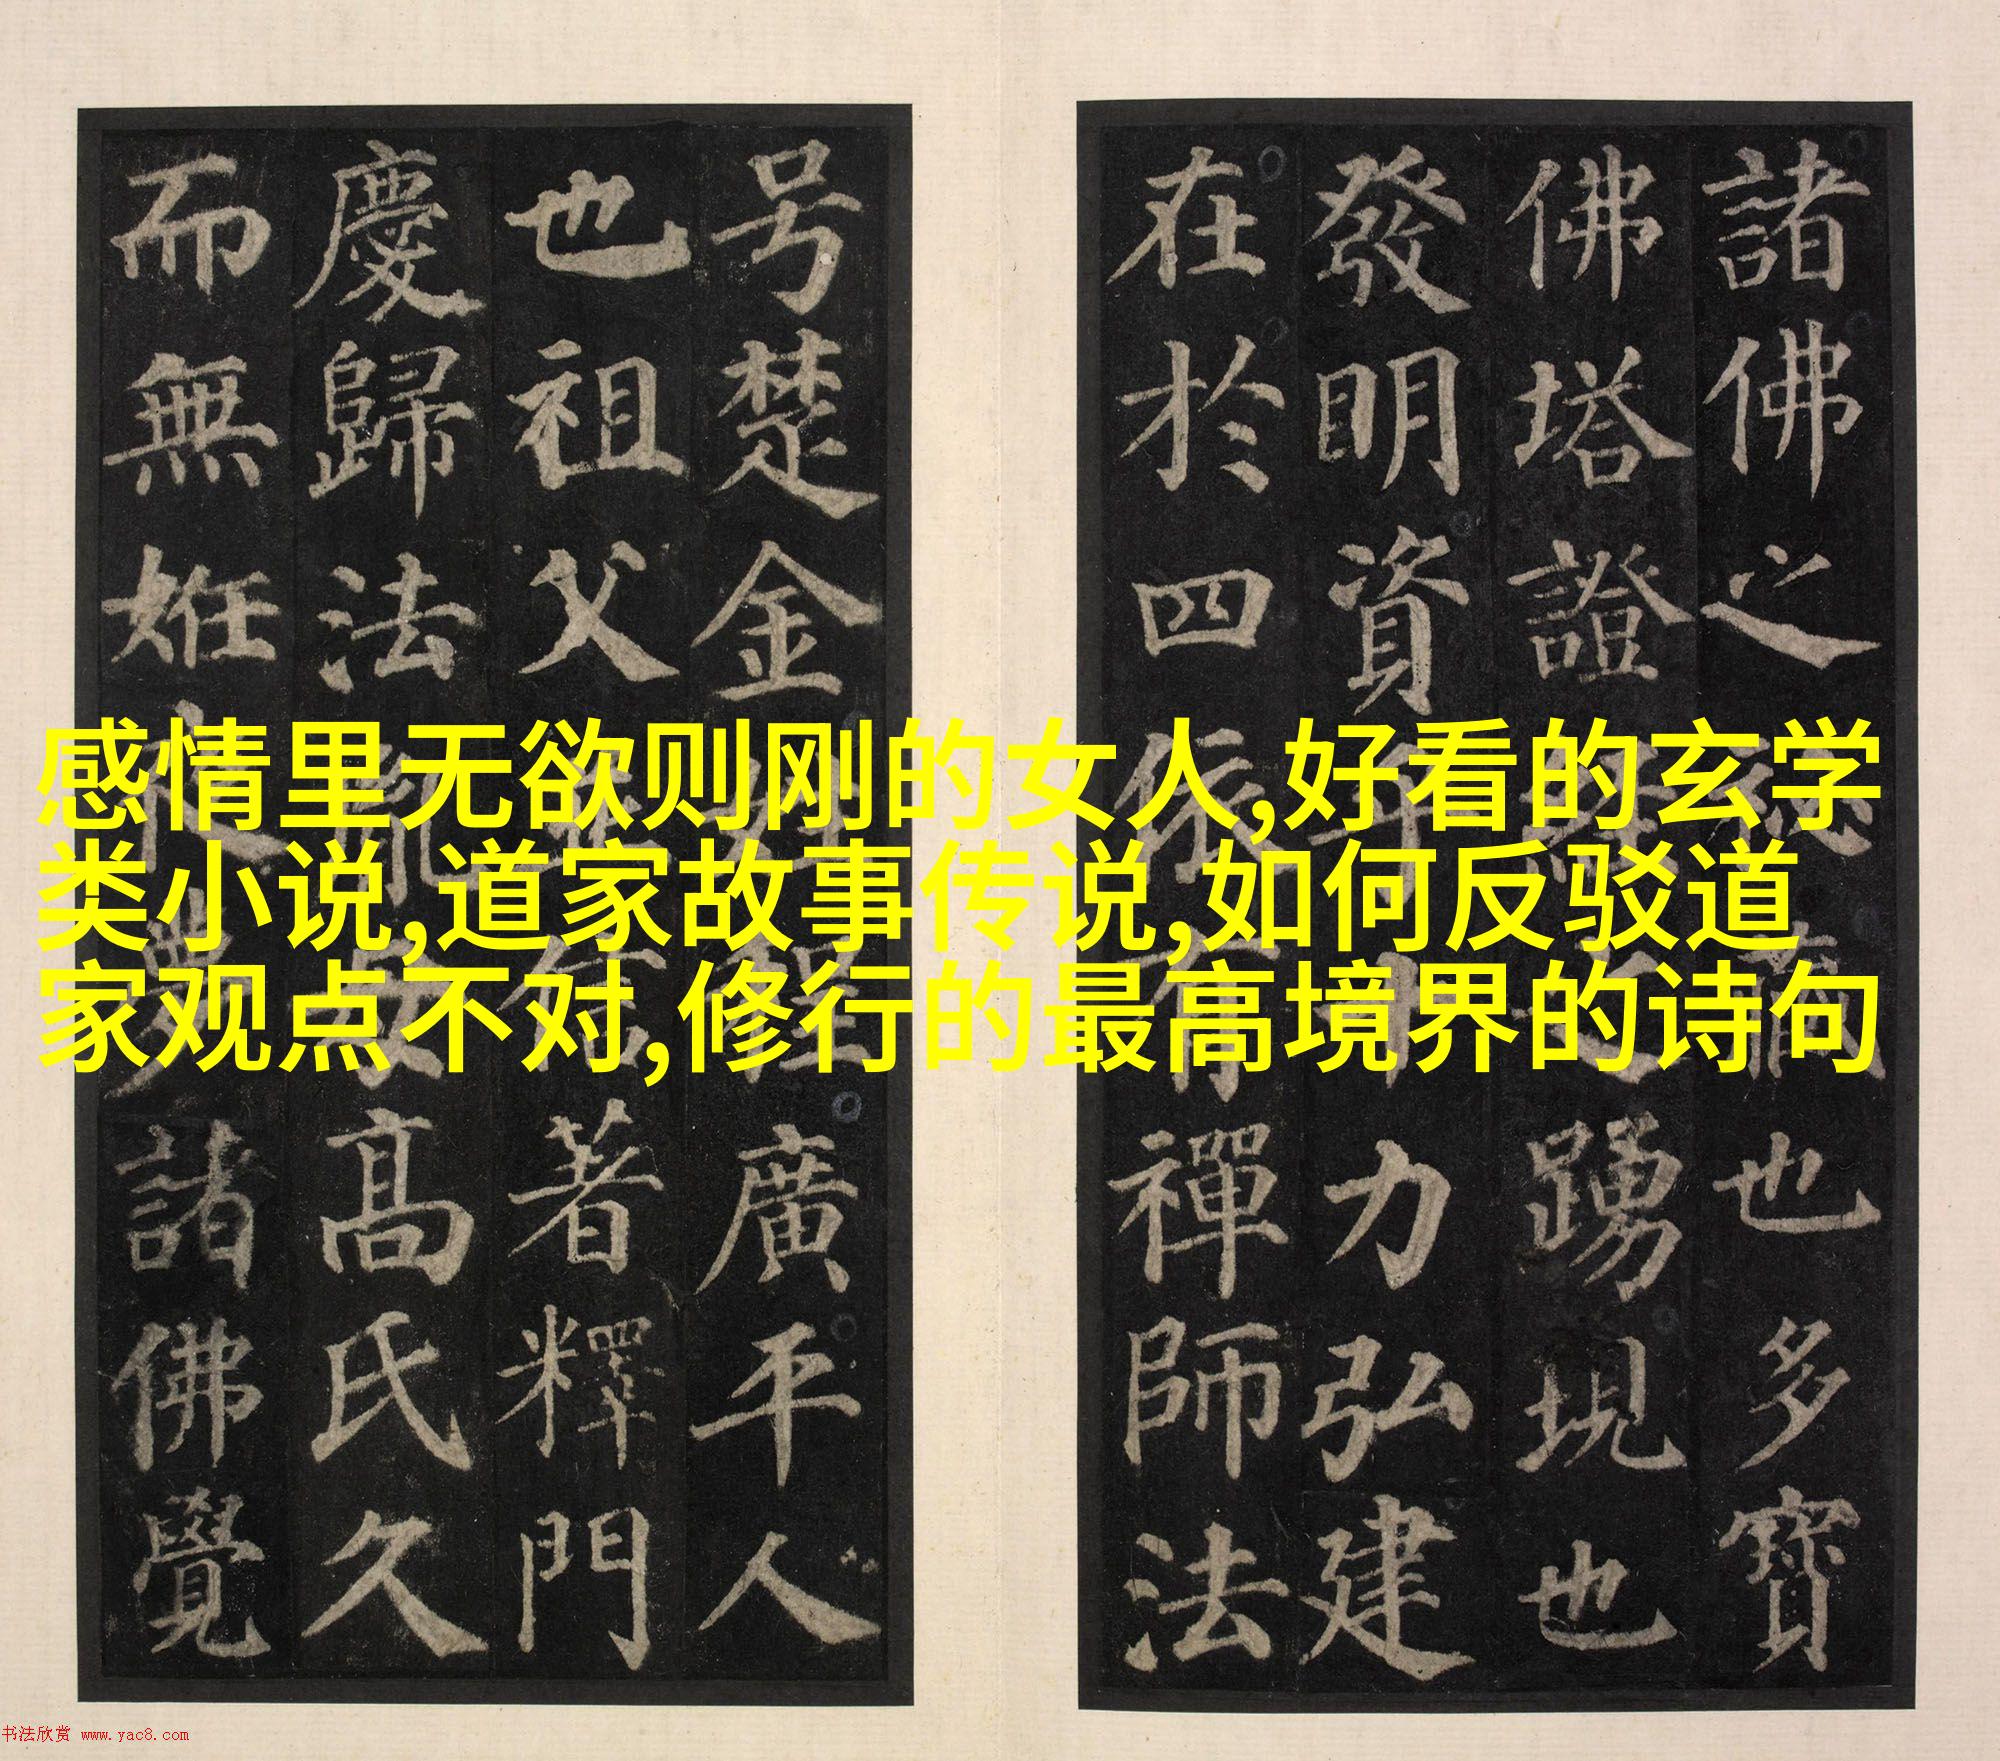 諸佛之秘藏也多寶
佛塔證經之踴現也
發明資乎十力弘建
在於四依有禪師法
号楚金姓程廣平人
也祖父並信著釋門
慶歸法胤母高氏久
而無妊夜夢諸佛覺
感情里无欲则刚的女人,好看的玄学
类小说,道家故事传说,如何反驳道
家观点不对,修行的最高境界的诗句
书法欣赏 www.yac8.com